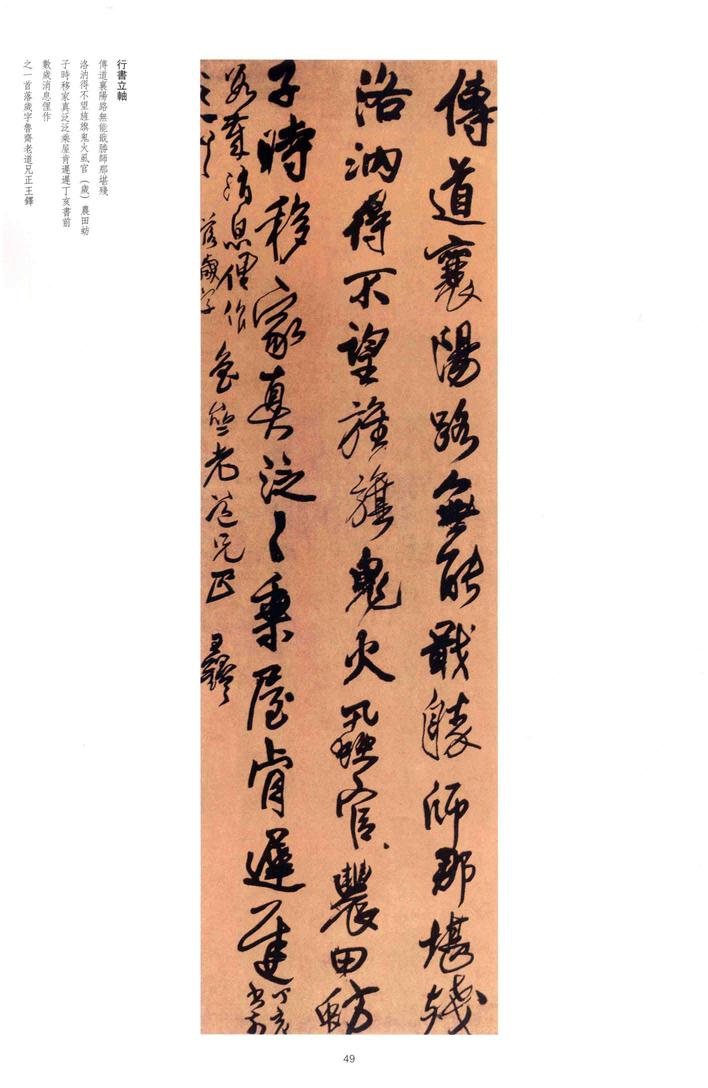 行書立軸
傳道襄陽路無能戢勝師那堪殘
洛汭得不望旌旗鬼火虱官（歲）農田蚄
子時移家真泛泛乘屋肯遲遲丁亥書前
數歲消息俚作
之一首落歲字魯齋老道兄正王鐸
傳道襄陽路無能戢勝師那堪殘
洛汭得不望旌旗鬼火虱官農田蚄
子時移家真泛〻乘屋肯遲遲丁亥書前
數歲消息俚作
之一首落歲字魯齋老道兄正王鐸
49